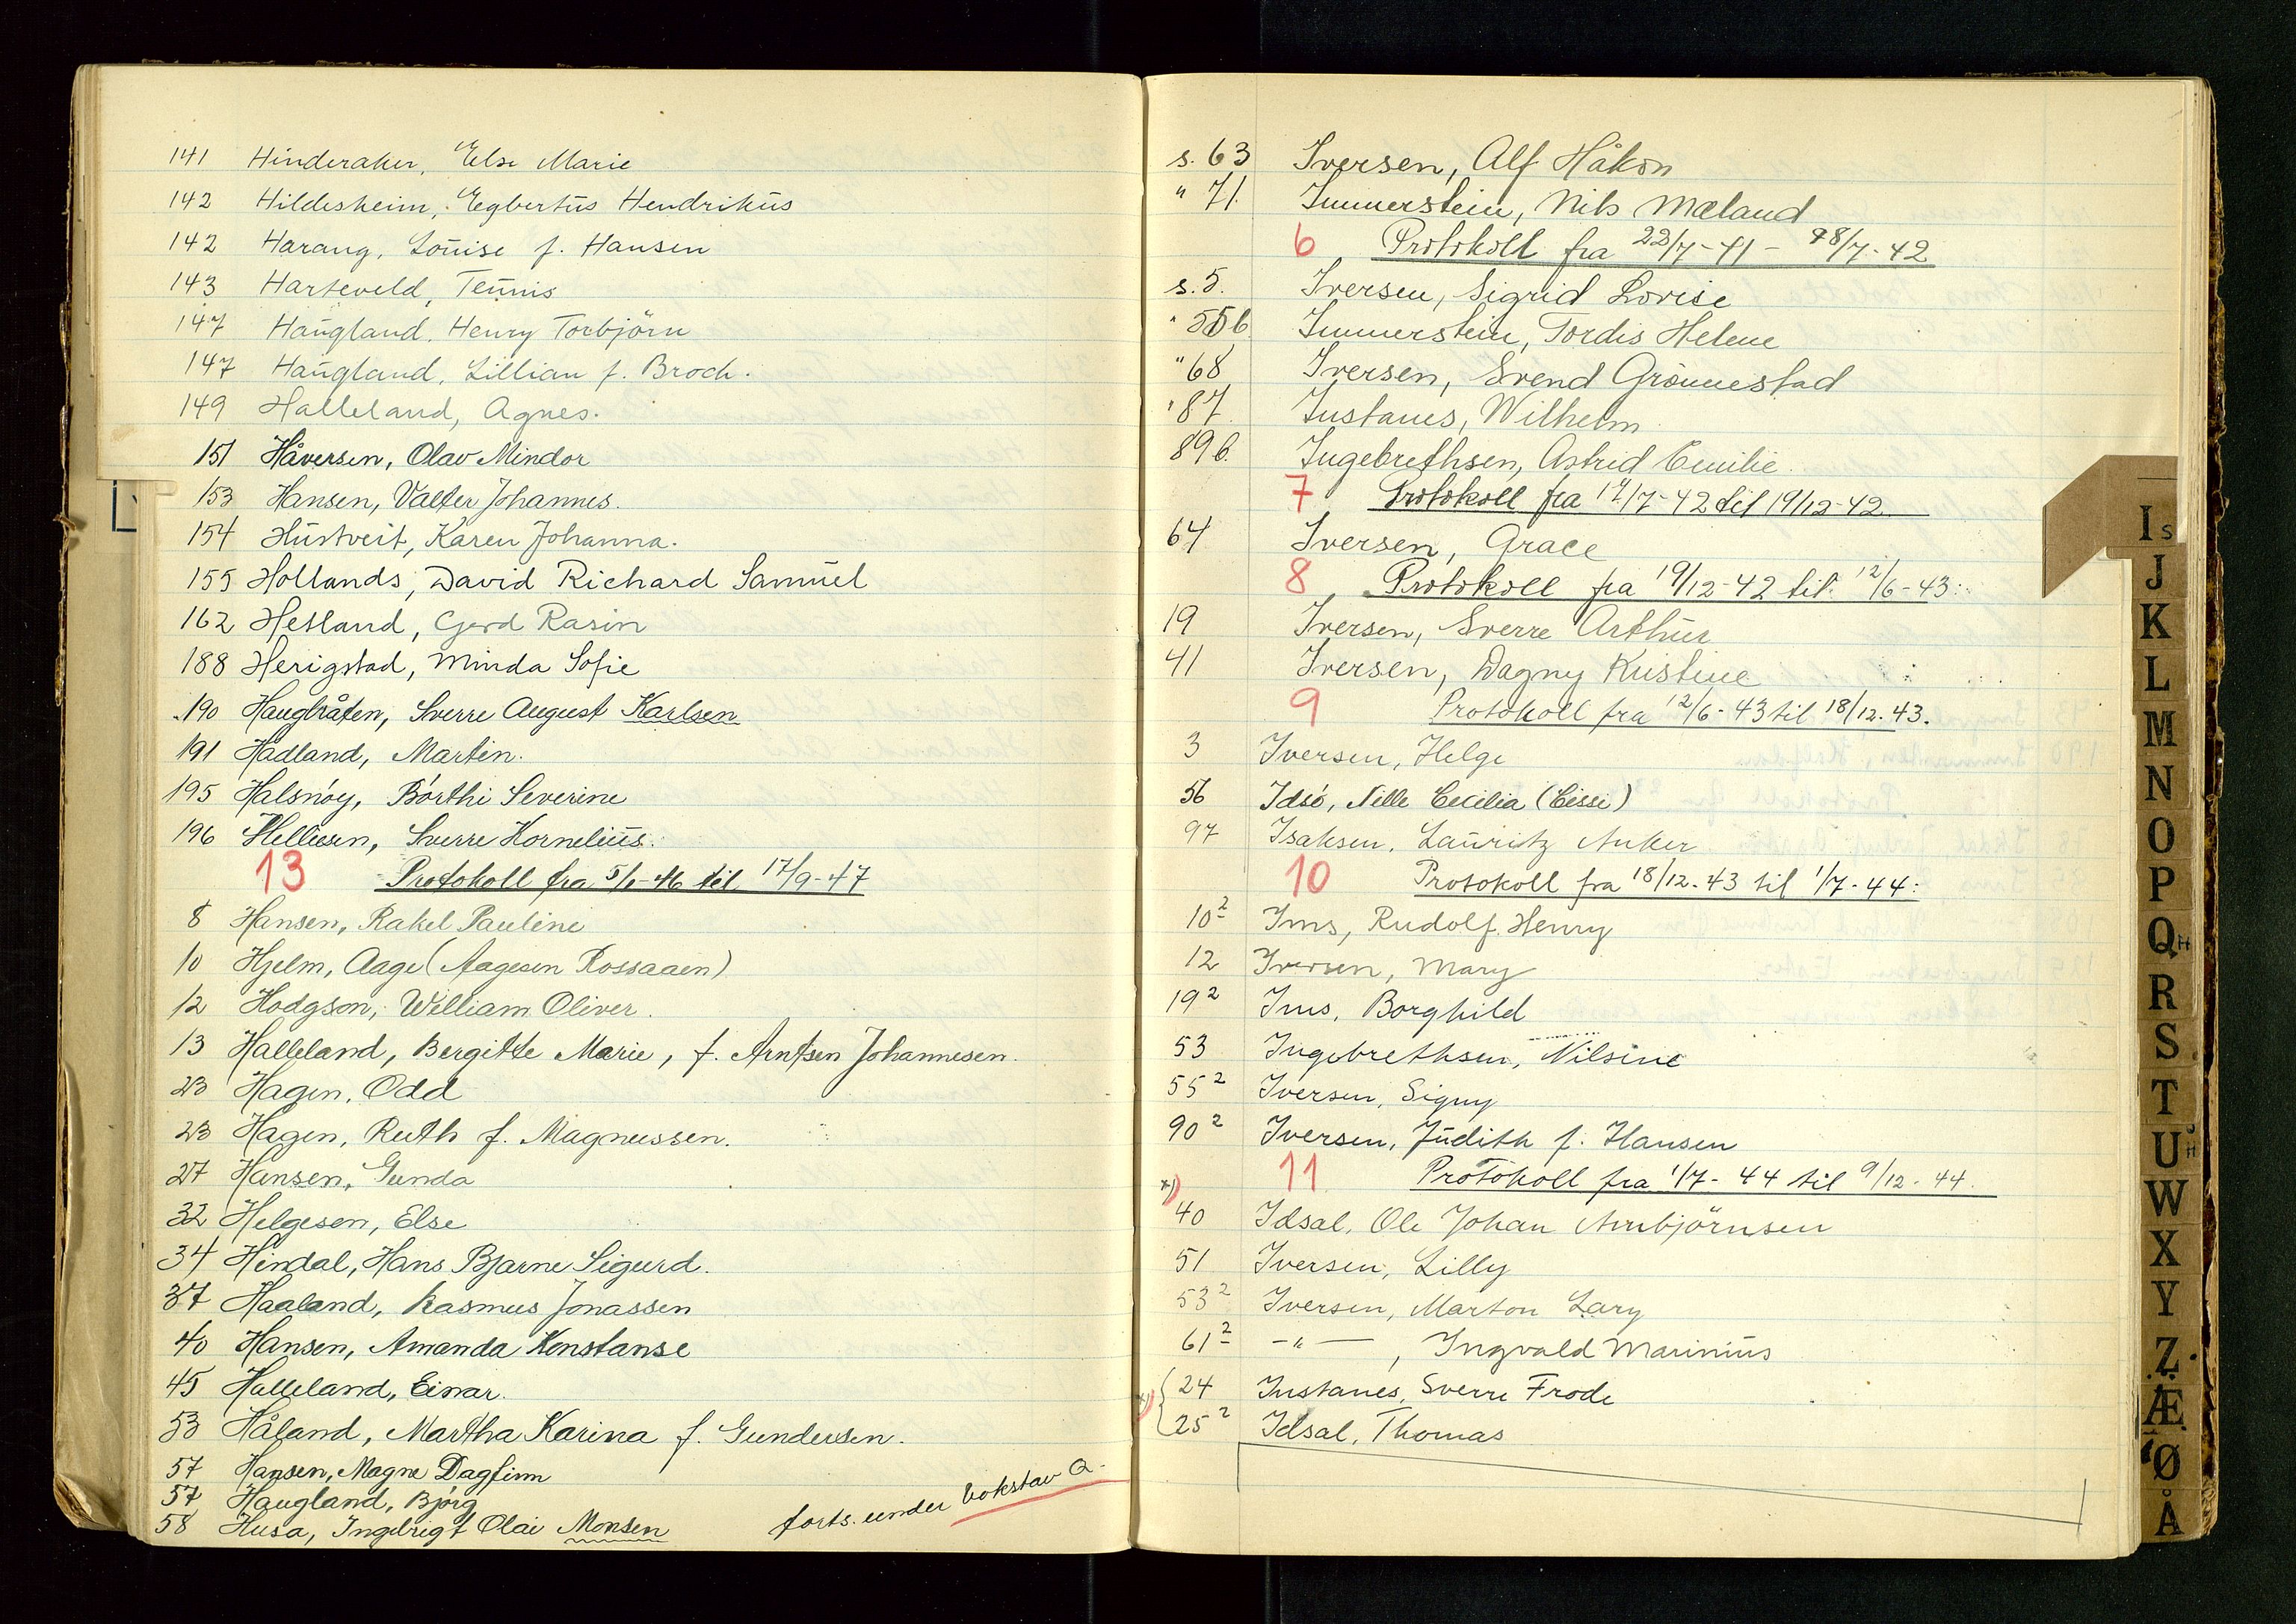 141 Hinderaker, Else Marie
142 Hildesheim, Egbertus Hendrikus
142 Harang, Louise f. Hansen
143 Harteveld, Teunis
147 Haugland, Henry Torbjörn
147 Haugland, Lillian f. Broch.
149 Halleland, Agnes.
151 Håversen, Olav Mindor
153 Hansen, Valter Johannes.
154 Hustveit, Karen Johanna.
155 Hollands, David Richard Samuel
162 Hetland, Gerd Rasin
188 Herigstad, Minda Sofie
190 Haugbråten, Sverre August Karlsen
191 Hadland, Martin.
195 Halsnöy, Börthi Severine
196 Helliesen, Sverre Kornelius.
13 Protokoll fra 5/1-46 til 17/9-47
8 Hansen, Rakel Pauline
10 Hjelm, Aage (Aagesen Rossaaen)
12 Hodgson, William Oliver.
13 Halleland, Bergitte Marie, f. Arntsen Johannesen.
23 Hagen, Odd
23 Hagen, Ruth f. Magnussen.
27 Hansen, Gunda
32 Helgesen, Else
34 Hindal, Hans Bjarne Sigurd.
37 Haaland, Rasmus Jonassen
40 Hansen, Amanda Konstanse
45 Halleland, Einar.
53 Håland, Martha Karina f. Gundersen.
57 Hansen, Magne Dagfinn
57 Haugland, Björg
58 Husa, Ingebrigt Olai Monsen
forts. under bokstav Q.
s. 63 Iversen, Alf Håkon
" 71. Immerstein, Nils Mæland
6 Protokoll fra 22/7-41 - 18/7-42
s. 5. Iversen, Sigrid Lovise
" 55b. Immerstein, Tordis Helene
" 68 Iversen, Svend Grönnestad
" 87 Instanes, Wilhelm
89b. Ingebrethsen, Astrid Emilie.
7 Protokoll fra 17/7-42 til 19/12-42
64 Iversen, Grace
8 Protokoll fra 19/12-42 til 12/6-43.
19 Iversen, Sverre Arthur
41 Iversen, Dagny Kristine
9 Protokoll fra 12/6-43 til 18/12.43.
3 Iversen, Helge
56 Idsö, Nille Cecilia (Cissi)
97 Isaksen, Lauritz Anker
10 Protokoll fra 18/12-43 til 1/7-44.
10² Ims, Rudolf Henry
12 Iversen, Mary
19² Ims, Borghild
53 Ingebrethsen, Nilsine
55² Iversen, Signy
90² Iversen, Judith f. Hansen
11 Protokoll fra 1/7-44 til 9/12-44.
x)
40 Idsal, Ole Johan Arnbjörnsen
51 Iversen, Lilly
53² Iversen, Marton Lary
61² -"-, Ingvald Marinius
x) 24 Instanes, Sverre Frode
25² Idsal, Thomas
Is
J
K
L
M
N
O
P
QH
R
S
T
U
W
X
Y
Z
Æ
Ø
Å